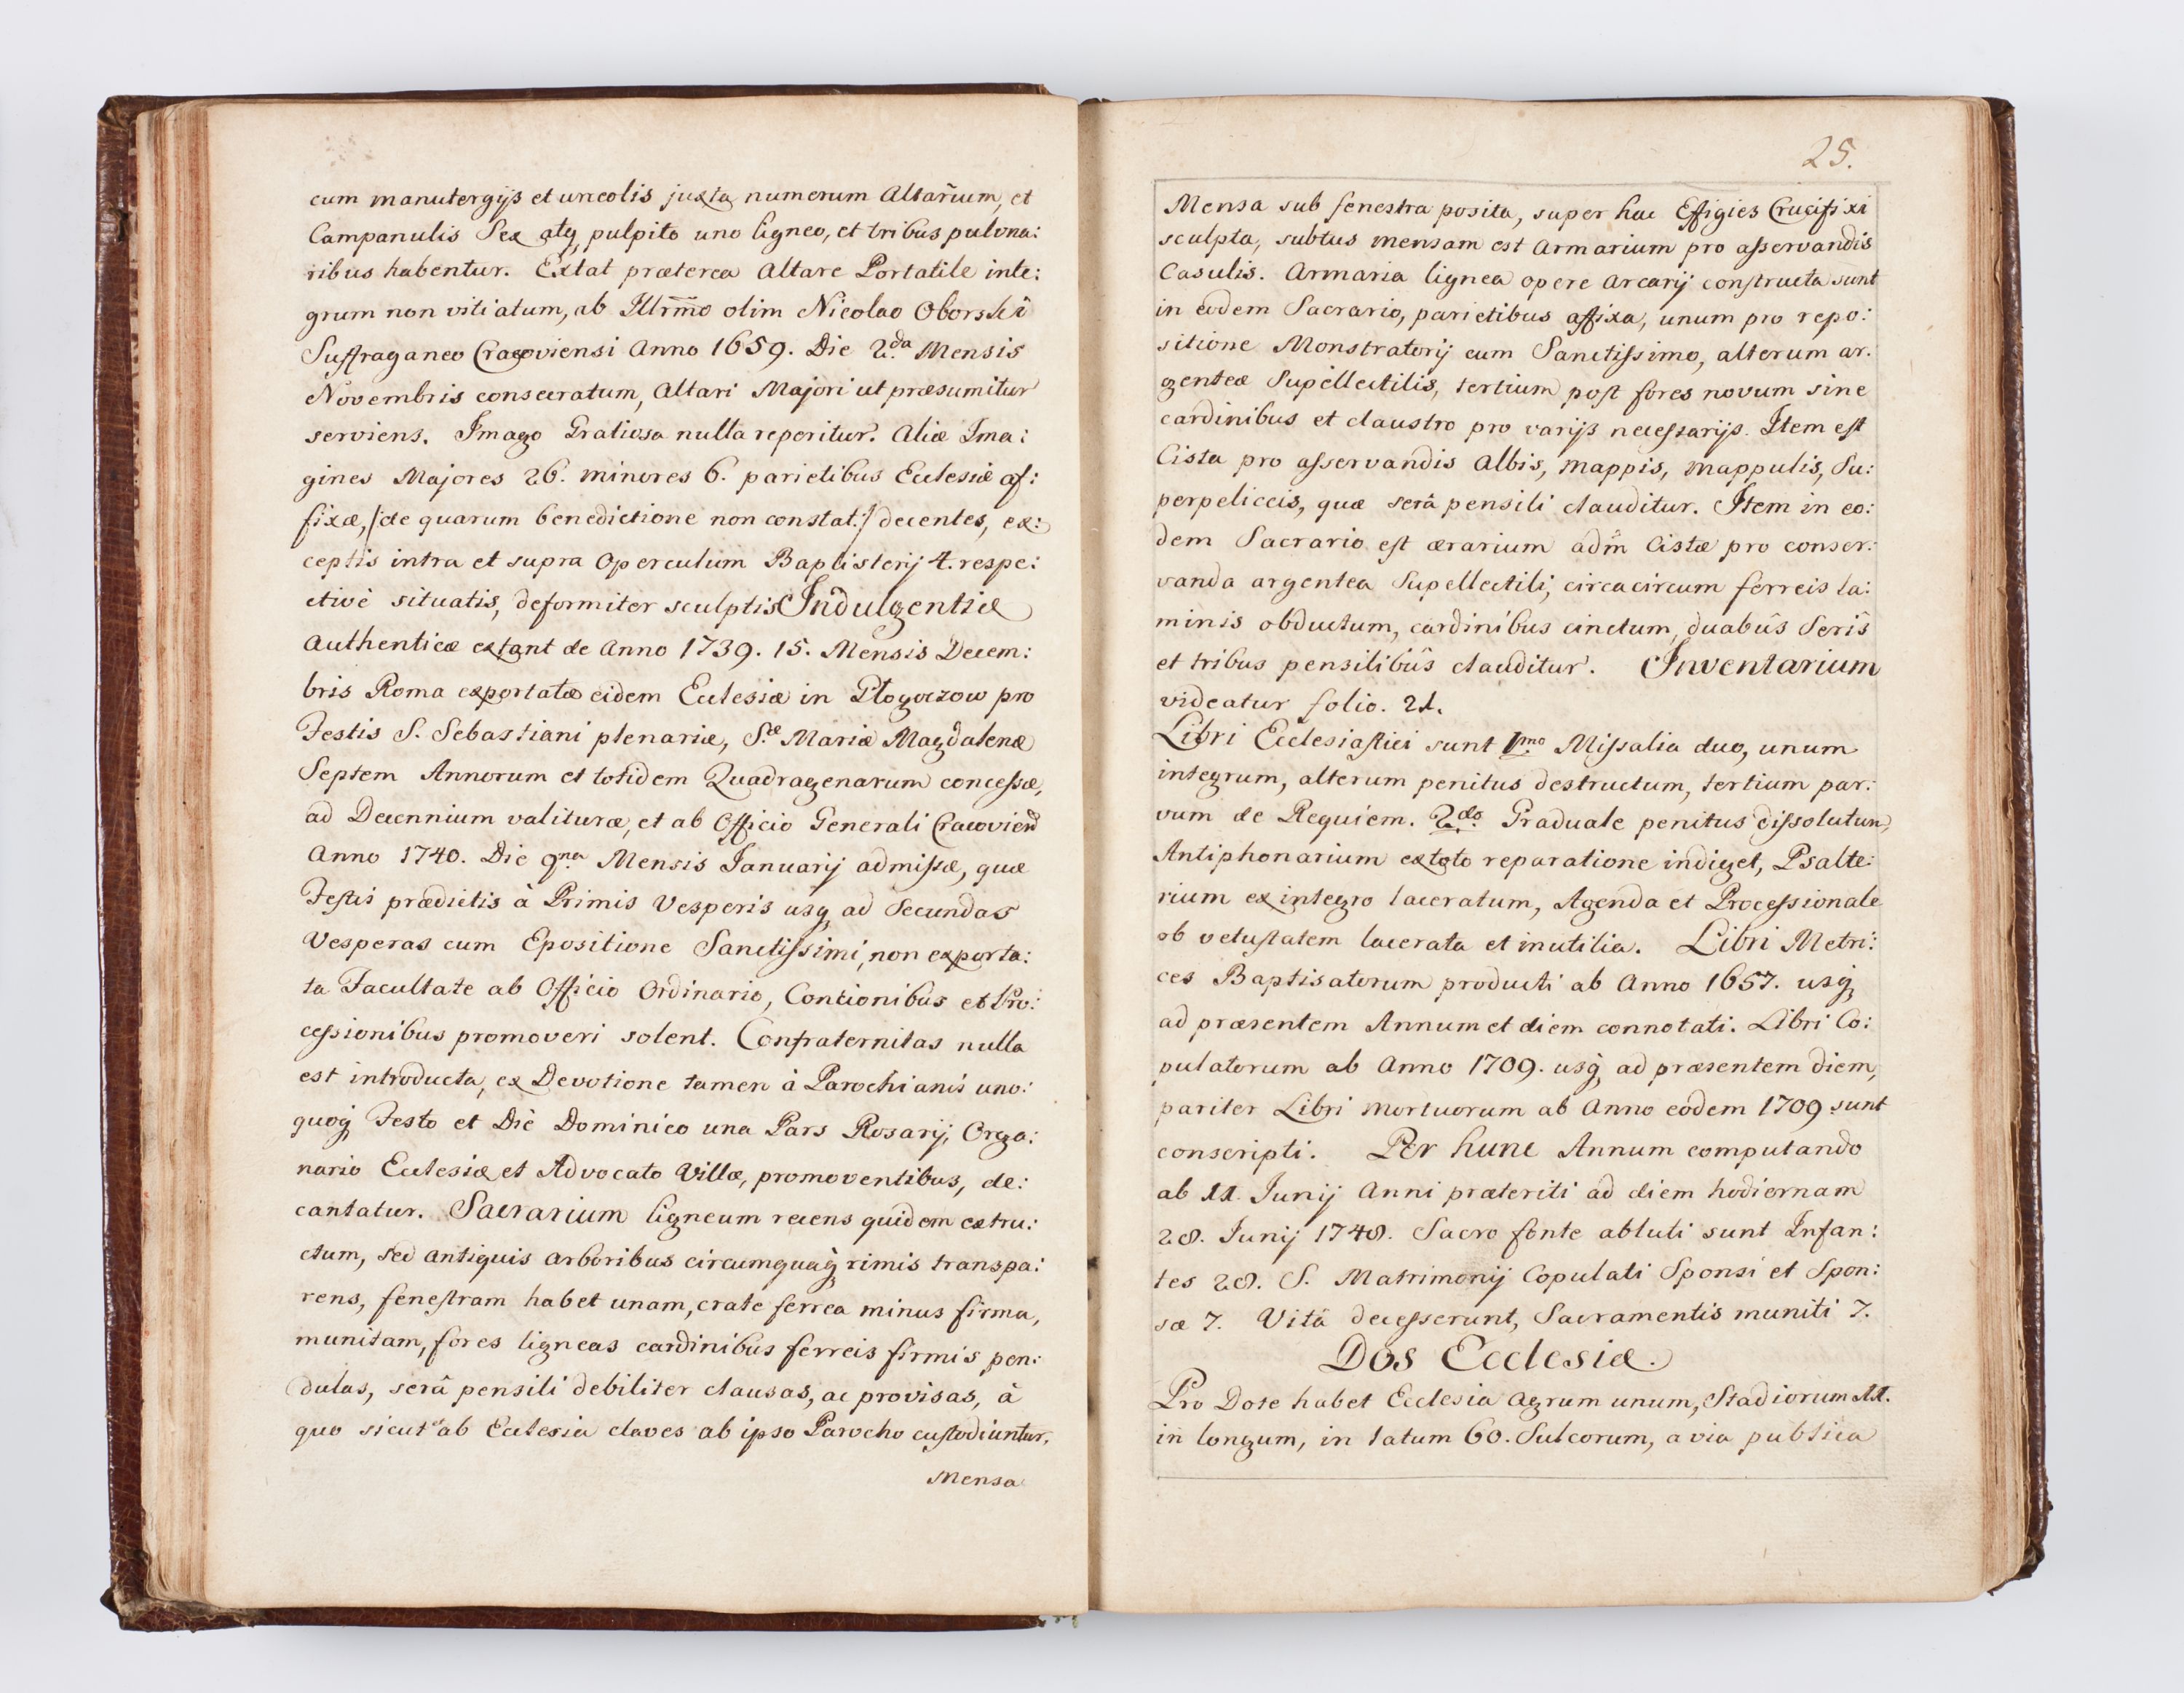 cum manutergijs et urceolis juxta numerum Altarium, et
Campanulis Sex atq pulpito uno ligneo, et tribus pulvna:
ribus habentur. Extat præterea Altare Portatile inte:
grum non vitiatum, ab Illrmo olim Nicolao Oborski
Suffraganeo Cracoviensi Anno 1659. Die 2.da Mensis
Novembris consecratum, Altari Majori ut præsumitur
serviens. Imago Gratiosa nulla reperitur. Aliæ Ima:
gines Majores 26. minores 6. parietibus Ecclesiæ af:
fixæ, /:de quarum benedictione non constat:/ decentes, ex:
ceptis intra et supra Operculum Baptisterij 4. respe:
ctivè situatis, deformiter sculptis Indulgentiæ
Authenticæ extant de Anno 1739. 15. Mensis Decem:
bris Roma exportatæ eidem Ecclesiæ in Płogoczow pro
Festis S. Sebastiani plenariæ, S.æ Mariæ Magdalenæ
Septem Annorum et totidem Quadragenarum concessæ,
ad Decennium valituræ, et ab Officio Generali Cracovien
Anno 1740. Die 9.na Mensis Januarij admissæ, quæ
Festis prædictis à Primis Vesperis usq ad Secundas
Vesperas cum Epositione Sanctissimi, non exporta:
ta Facultate ab Officio Ordinario, Contionibus et Pro:
cessionibus promoveri solent. Confraternitas nulla
est introducta, ex Devotione tamen à Parochianis uno:
quoq Festo et Diè Dominico una Pars Rosarij, Orga:
nario Ecclesiæ et Advocato Villæ, promoventibus, de:
cantatur. Sacrarium ligneum recens quidem extru:
ctum, sed antiquis arboribus circumquaq rimis transpa:
rens, fenestram habet unam, crate ferrea minus firma,
munitam, fores ligneas cardinibus ferreis firmis pen:
dulas, serâ pensili debiliter clausas, ac provisas, à
quo sicut et ab Ecclesia claves ab ipso Parocho custodiuntur.
Mensa
25.
Mensa sub fenestra posita, super hac Effigies Crucifixi
sculpta, subtus mensam est Armarium pro asservandis
Casulis. Armaria lignea opere Arcarij constructa sunt
in eodem Sacrario, parietibus affixa, unum pro repo:
sitione Monstratorij cum Sanctissimo, alterum ar.
genteæ Supellectilis, tertium post fores novum sine
cardinibus et claustro pro varijs necessarijs. Item est
Cista pro asservandis Albis, mappis, mappulis, Su:
perpeliceis, quæ serâ pensili clauditur. Item in eo:
dem Sacrario est ærarium adm Cistæ pro conser:
vanda argentea Supellectili, circacircum ferreis la:
minis obductum, cardinibus cinctum, duabus Seris
et tribus pensilibus clauditur. Inventarium
videatur folio. 21.
Libri Ecclesiastici sunt 1mo Missalia duo, unum
integrum, alterum penitus destructum, tertium par:
vum de Requiem. 2.do Graduale penitus dissolutum,
Antiphonarium ex toto reparatione indiget, Psalte:
rium ex integro laceratum, Agenda et Processionale
ob vetustatem lacerata et inutilia. Libri Metri:
ces Baptisatorum producti ab Anno 1657. usq
ad præsentem Annum et diem connotati. Libri Co:
pulatorum ab Anno 1709. usq ad præsentem diem,
pariter Libri mortuorum ab Anno eodem 1709 sunt
conscripti. Per hunc Annum computando
ab 11. Junij Anni præteriti ad diem hodiernam
28. Junij 1748. Sacro fonte abluti sunt Infan:
tes 28. S. Matrimonij Copulati Sponsi et Spon:
sæ 7. Vitâ decesserunt, Sacramentis muniti 7.
Dos Ecclesiæ.
Pro Dote habet Ecclesia Agrum unum, Stadiorum 11.
in longum, in latum 60. Sulcorum, a via publica